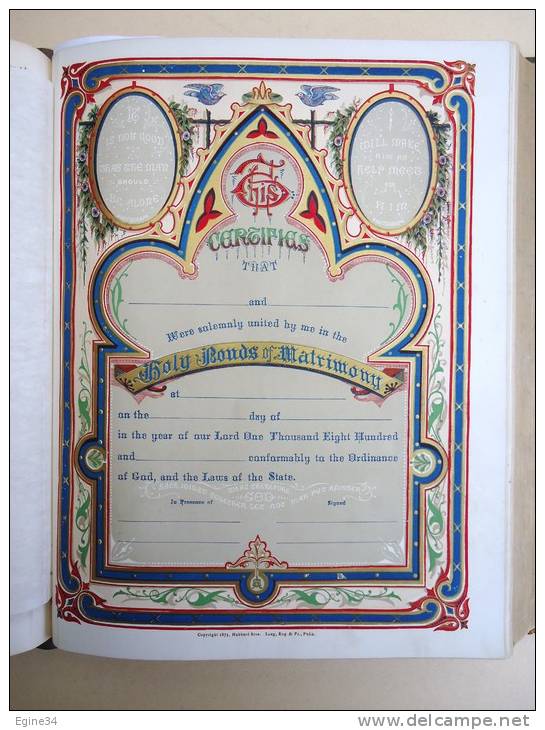 It
is not good
that the man
should
be alone
I
will make
him an
help meet
for
him
This
Certifies
THAT
and
Were solemnly united by me in the
Holy Bonds of Matrimony
at
on the day of
in the year of our Lord One Thousand Eight Hundred
and conformably to the Ordinance
of God, and the Laws of the State.
WHAT THEREFORE
GOD
HATH JOINED TOGETHER LET NOT MAN PUT ASUNDER
In Presence of Signed
Copyright 1873, Hubbard Bros. Long, Eng & Pr., Phila.
Egine34
www.delcampe.net